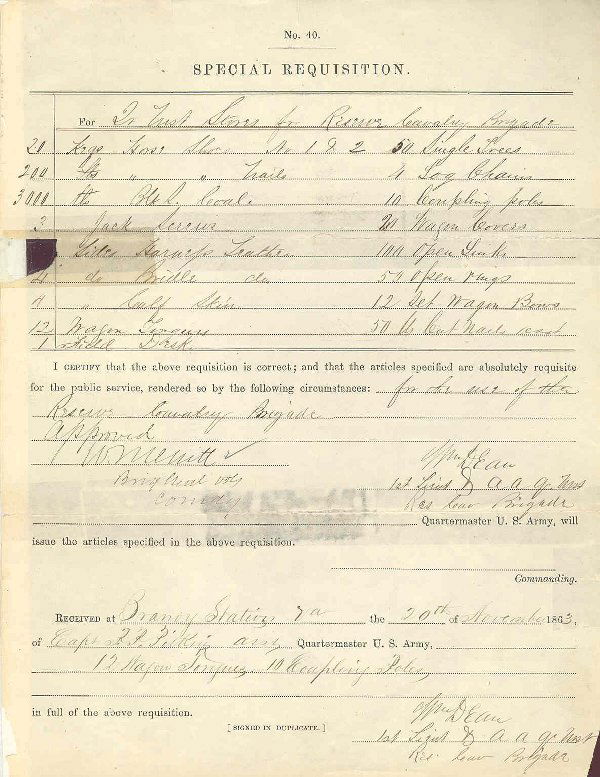 No. 40.
SPECIAL REQUISITION.
For Qr Mst Stores for Reserve Cavalry Brigade
20 Kegs Horse Shoes No 1 & 2 50 Single Trees
200 lbs " " Nails 4 Log Chains
3000 lbs Blk S. Coal 10 Coupling poles
2 Jack Screws 20 Wagon Covers
Sides Harness Leather 100 Open Links
4 do Bridle do 50 Open rings
4 " Calf Skin 12 Set Wagon Bows
12 Wagon Tongues 50 lb Cut Nails
1 Desk
I CERTIFY that the above requisition is correct; and that the articles specified are absolutely requisite
for the public service, rendered so by the following circumstances: for the use of the
Reserve Cavalry Brigade
Approved
W Merritt
Brig Genl vols
Comdg
Wm Dean
1st Lieut & A A Q Mas
Res Cav Brigade
Quartermaster U. S. Army, will
issue the articles specified in the above requisition.
Commanding.
RECEIVED at Brandy Station Va the 20th of November 1863,
of Capt Quartermaster U. S. Army,
12 Wagon Tongues 10 Coupling Poles
in full of the above requisition.
[SIGNED IN DUPLICATE.]
Wm Dean
1st Lieut & A A Q Mst
Res Cav Brigade